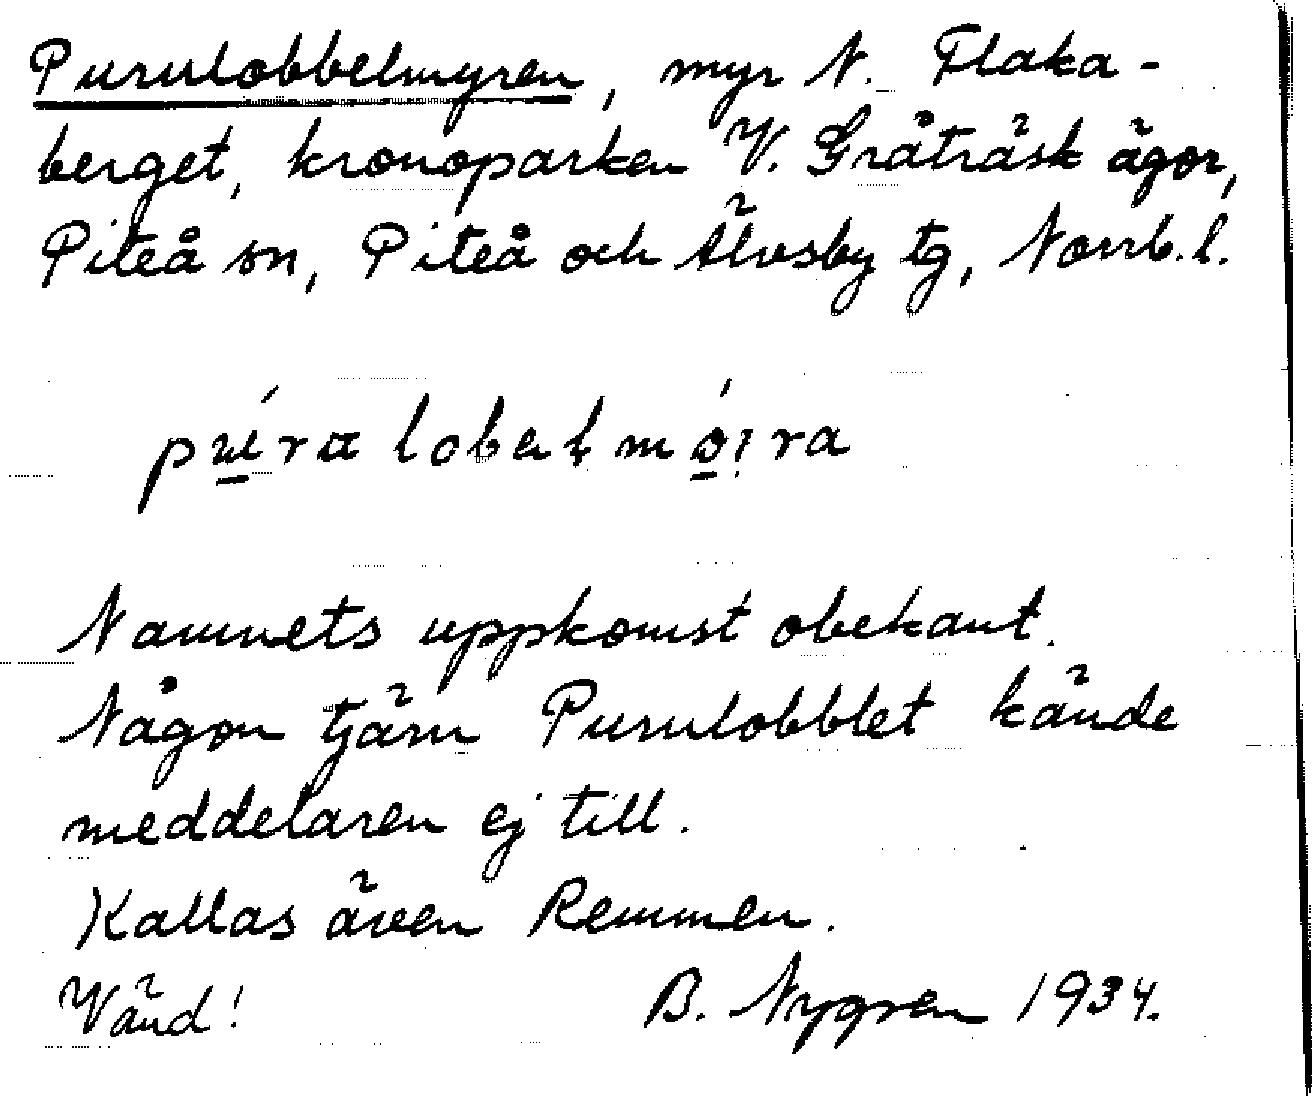 Purulobbelmyren, myr N. Flaka-
berget, kronoparken V. Gråträsk ägor,
Piteå sn, Piteå och Älvsby tg, Norrb. l.
Namnets uppkomst obekant.
Någon tjärn Purulobblet kände
meddelaren ej till.
Kallas även Remmen.
Vänd! B. Nygren 1934.